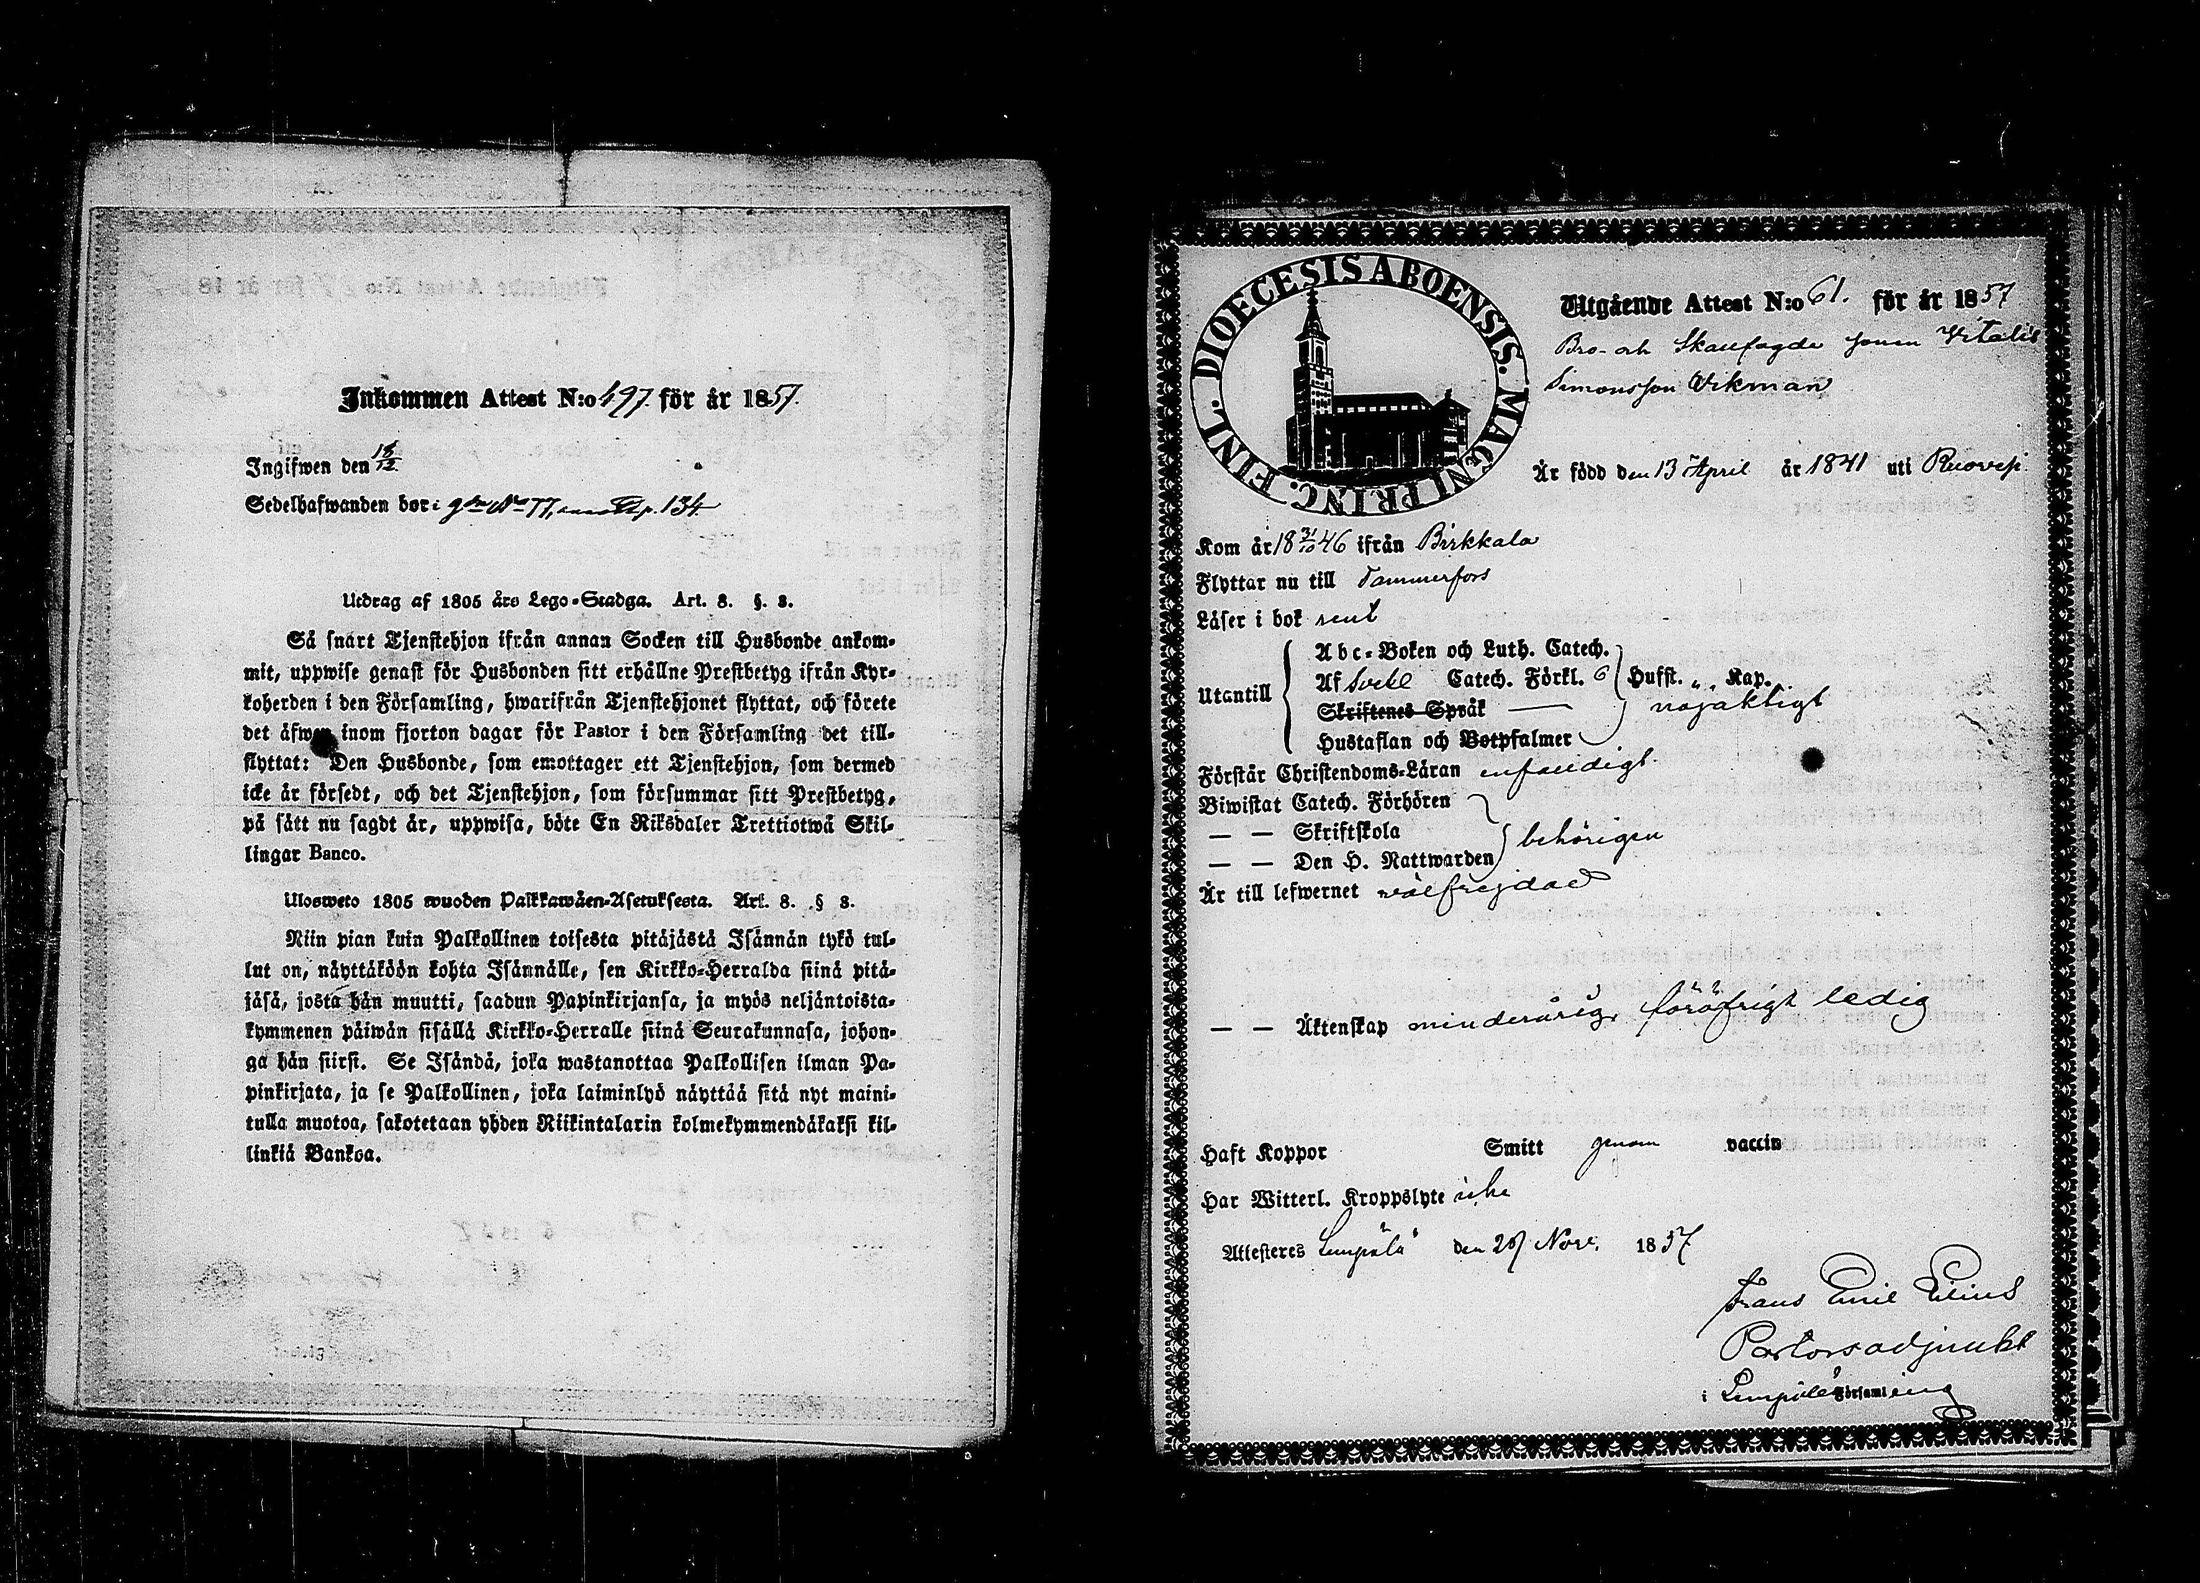 Inkommen Attest N:o 497. för år 1857.
Ingifwen den 15/12
Sedelhafwanden bor i gden No 77, p. 134
Utdrag af 1805 års Lego-Stadga. Art. 8. §. 8.
Så snart Tjenstehjon ifrån annan Socken till Husbonde ankom-
mit, uppwise genast för Husbonden sitt erhållne Prestbetyg ifrån Kyr-
koherden i den Församling, hwarifrån Tjenstehjonet flyttat, och förete
det äfwen inom fjorton dagar för Pastor i den Församling det till-
flyttat: Den Husbonde, som emottager ett Tjenstehjon, som dermed
icke är försedt, och det Tjenstehjon, som försummar sitt Prestbetyg,
på sätt nu sagdt är, uppwisa, böte En Riksdaler Trettiotwå Skil-
lingar Banco.
Ulosweto 1805 wuoden Palkkawäen-Asetuksesta. Art. 8. § 8.
Niin pian kuin Palkollinen toisesta pitäjästä Isännän tykö tul-
lut on, näyttäköön kohta Isännälle, sen Kirkko-Herralda siinä pitä-
jäsä, josta hän muutti, saadun Papinkirjansa, ja myös neljäntoista-
kymmenen päiwän sisällä Kirkko-Herralle siinä Seurakunnasa, johon-
ga hän siirsi. Se Isändä, joka wastanottaa Palkollisen ilman Pa-
pinkirjata, ja se Palkollinen, joka laiminlyö näyttää sitä nyt maini-
tulla muotoa, sakotetaan yhden Riikintalarin kolmekymmendäkaksi kil-
linkiä Bankoa.
DIOECESIS ABOENSIS. MAGNI PRINC. FINL.
Utgående Attest N:o 61. för år 1857
Bro- och Skallfogde sonen Vitalis
Simonsson Wikman
Är född den 13 April år 1841 uti Ruovesi
Kom år 18 31/10 46 ifrån Birkkala
Flyttar nu till Tammerfors
Läser i bok rent
Utantill
Abc-Boken och Luth. Catech.
Af Svebel Catech. Förkl. 6 Husst. „ Kap.
Skriftenes Språk — nöjaktigt
Hustaflan och Botpsalmer
Förstår Christendoms-Läran enfaldigt.
Biwistat Catech. Förhören
— — Skriftskola behörigen
— — Den H. Nattwarden
Är till lefwernet välfrejdad
— — Äktenskap minderårig, föröfrigt ledig
Haft Koppor Smitt genom vaccin
Har Witterl. Kroppslyte icke
Attesteres Lempälä den 28 Nov. 1857
Frans Emil Lilius
Pastorsadjunkt
i Lempälä Församling